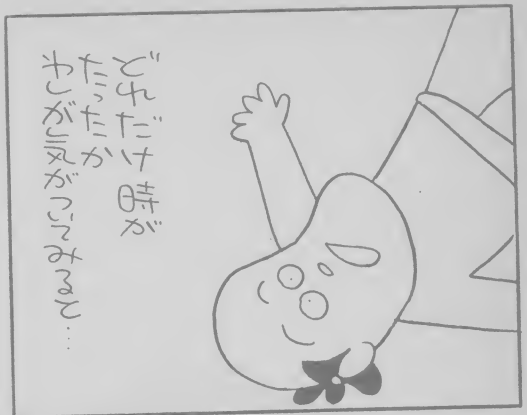 どれだけ時が
たったか
わしが気がついてみると…